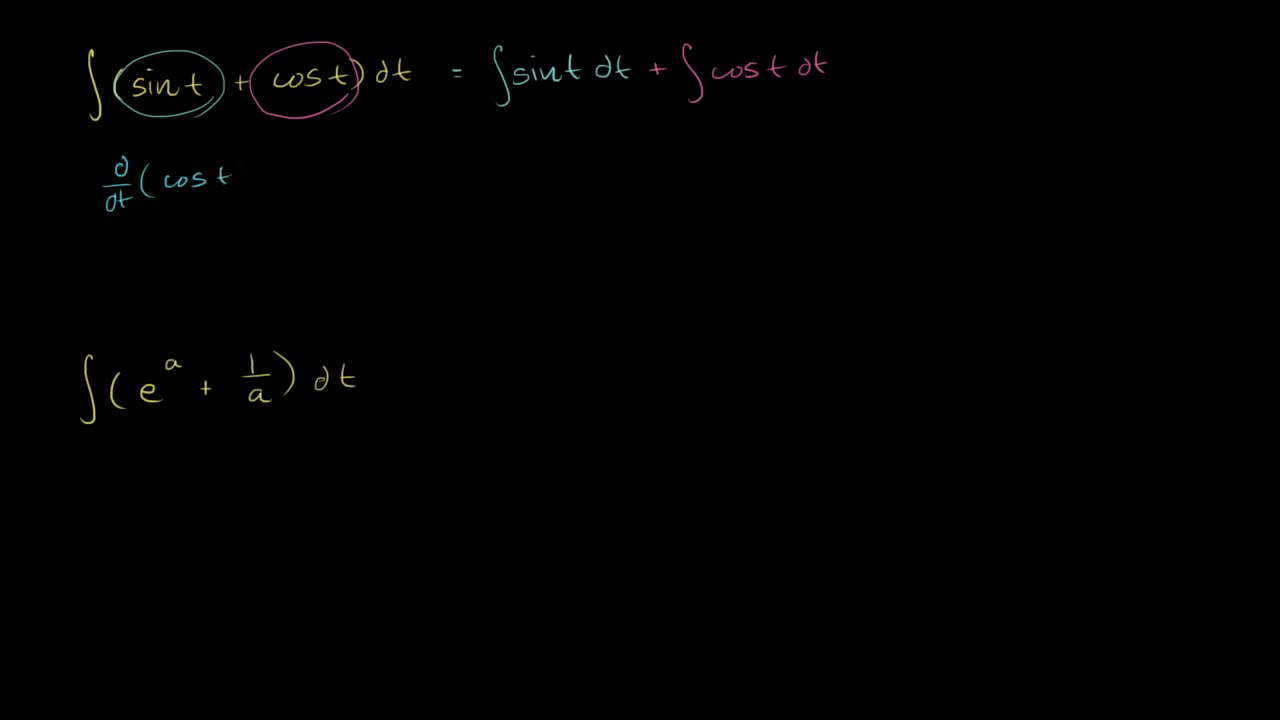 ∫(sin t + cos t) dt = ∫sin t dt + ∫cos t dt
d/dt (cos t
∫(e^a + 1/a) dt